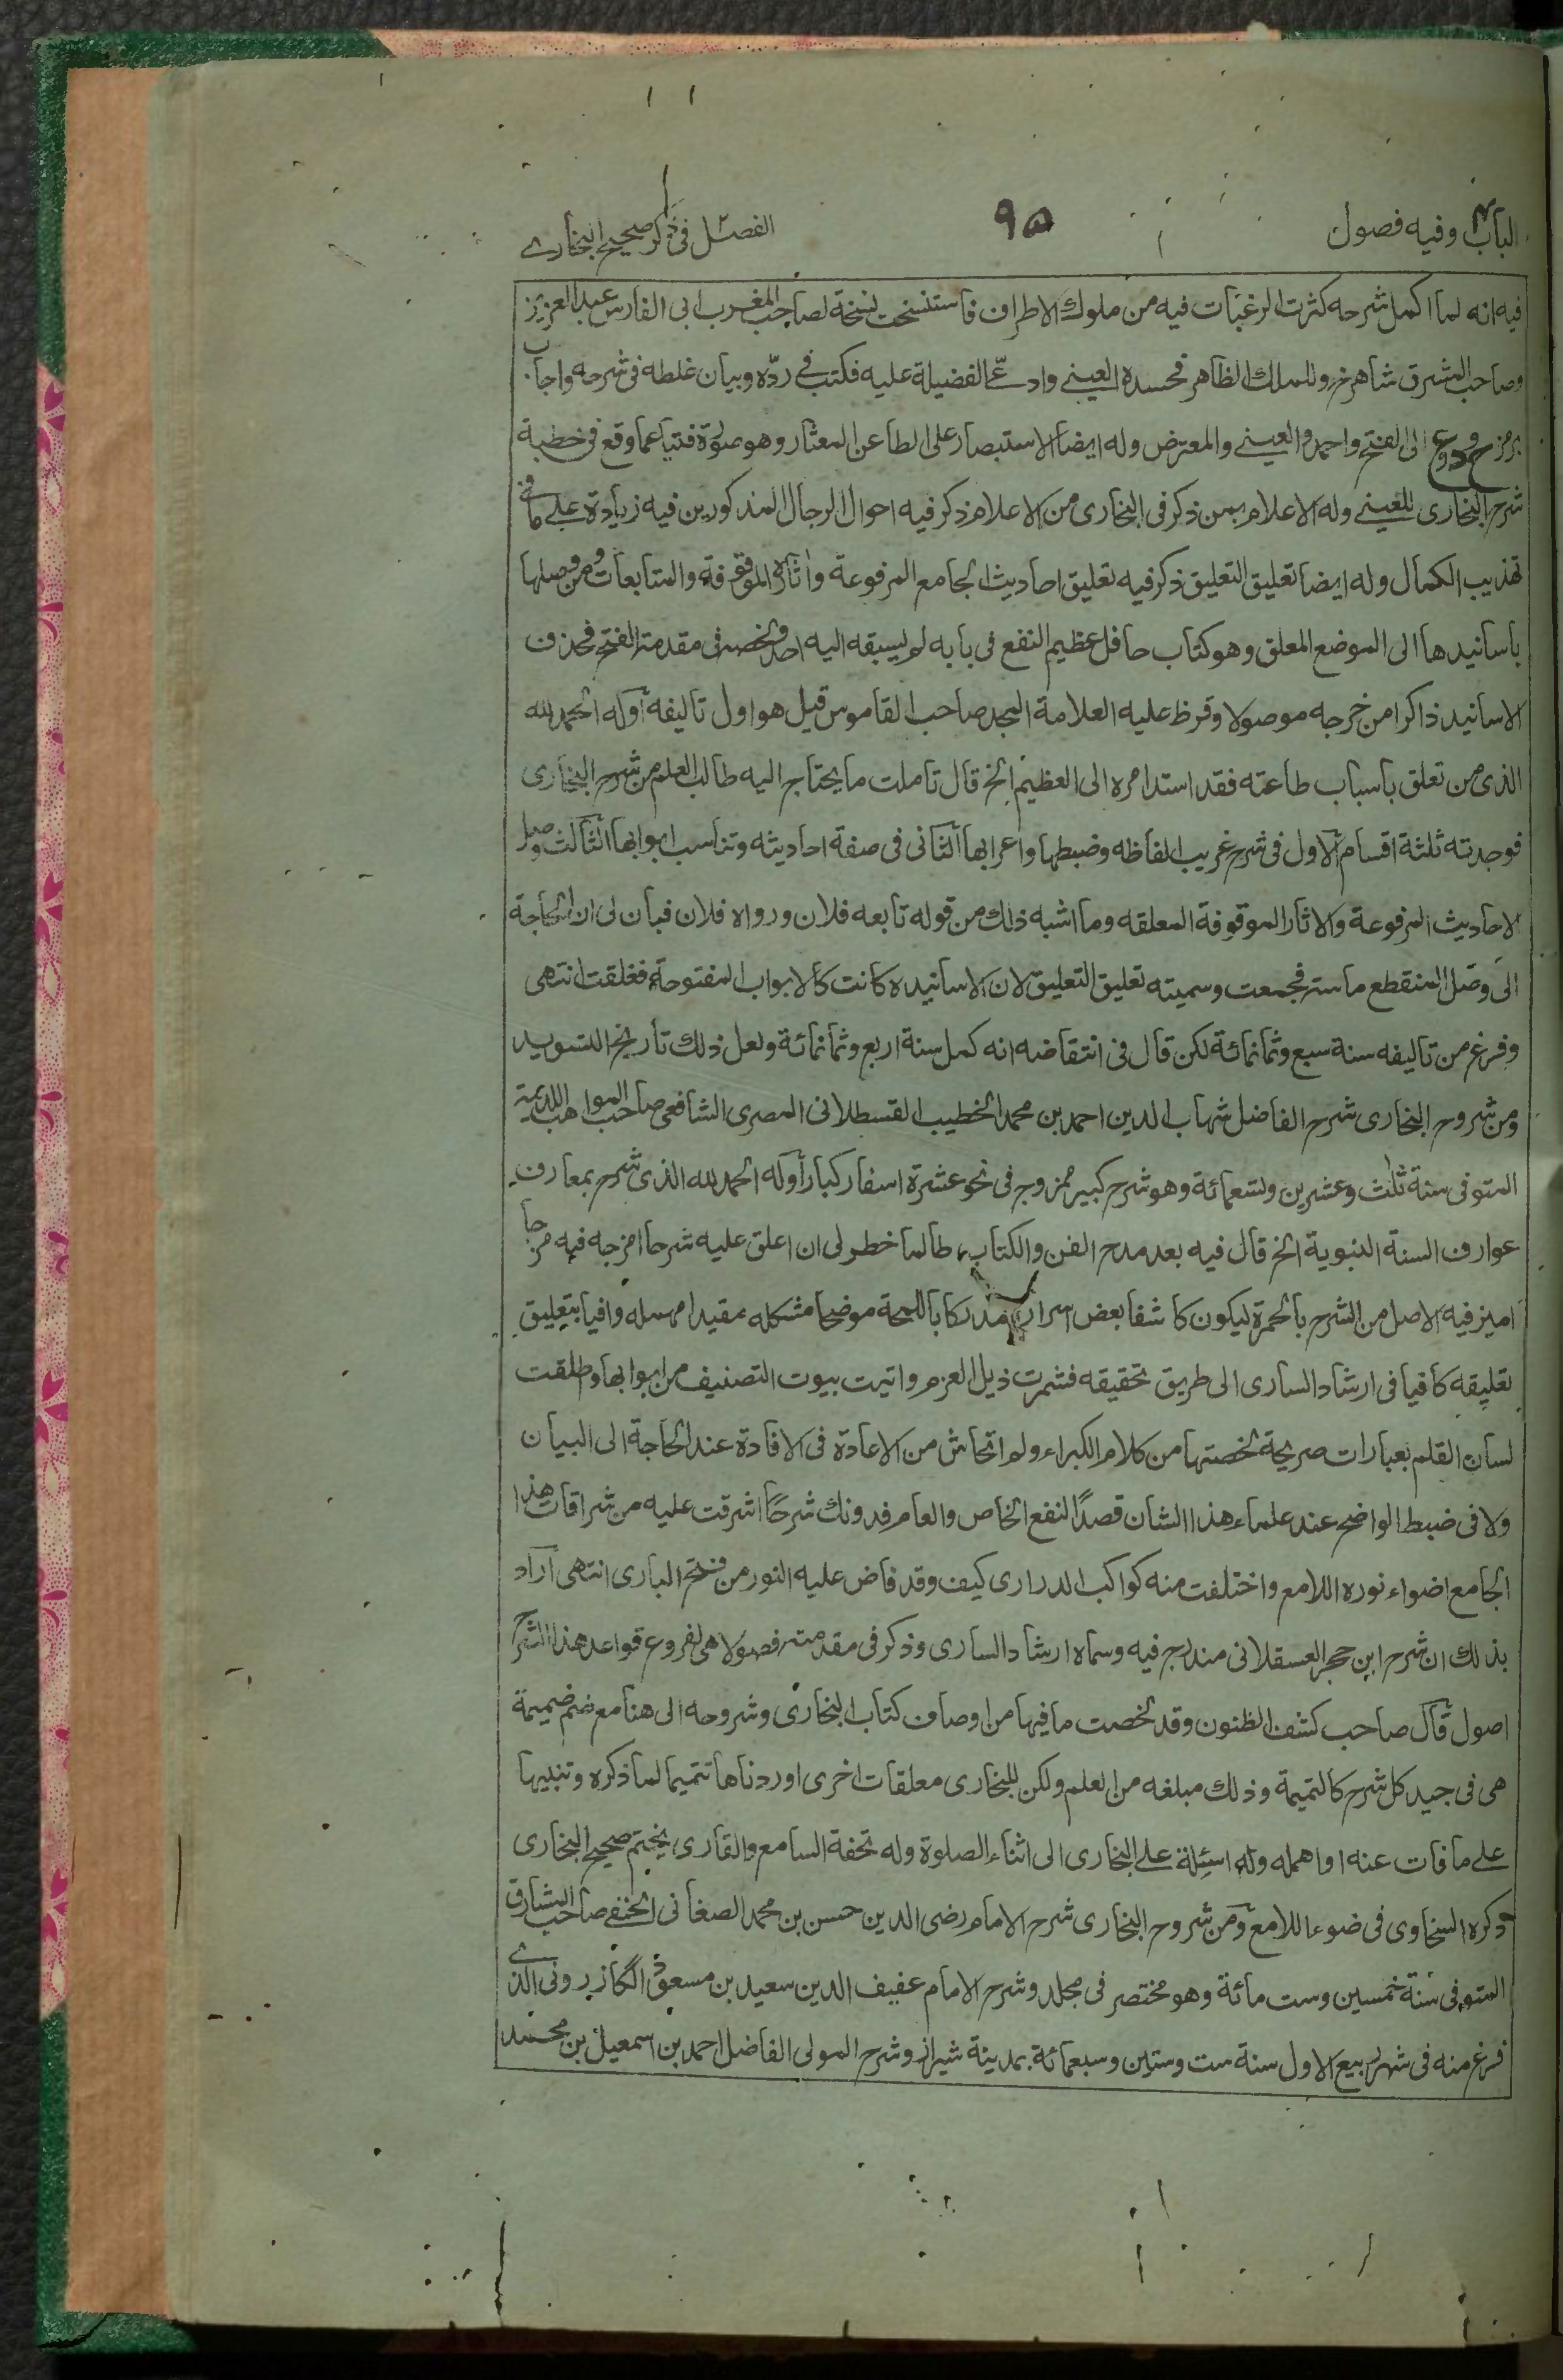 الباب٤ وفيه فصول
٩٥
الفصل في ذكر صحيح البخاري
فيه انه لما اكمل شرحه كثرت الرغبات فيه من ملوك الاطراف فاستنسخت نسخة لصاحب المغرب ابي الفارس عبد العزيز
وصاحب المشرق شاهرخ وللملك الظاهر فحسده العيني وادعى الفضيلة عليه فكتب في ردّه وبيان غلطه في شرحه واجاب
برمز ح وع الى الفتح واحمد والعيني والمعترض وله ايضا الاستبصار على الطاعن المعثار وهو صورة فتيا عما وقع في خطبة
شرح البخاري للعيني وله الاعلام بمن ذكر في البخاري من الاعلام ذكر فيه احوال الرجال المذكورين فيه زيادة على ما في
تهذيب الكمال وله ايضا تعليق التعليق ذكر فيه تعليق احاديث الجامع المرفوعة واثاره الموقوفة والمتابعات ومن وصلها
باسانيدها الى الموضع المعلق وهو كتاب حافل عظيم النفع في بابه لم يسبقه اليه احد ولخصه في مقدمة الفتح فحذف
الاسانيد ذاكرا من خرجه موصولا وقرظ عليه العلامة المجد صاحب القاموس قيل هو اول تاليفه اوله الحمد لله
الذي من تعلق باسباب طاعته فقد استد امره الى العظيم الخ قال تاملت ما يحتاج اليه طالب العلم من شرح البخاري
فوجدته ثلثة اقسام الاول في شرح غريب الفاظه وضبطها واعرابها الثاني في صفة احاديثه وتناسب ابوابها الثالث وصل
الاحاديث المرفوعة والاثار الموقوفة المعلقه وما اشبه ذلك من قوله تابعه فلان ورواه فلان فبان لي ان الحاجة
الى وصل المنقطع ماسته فجمعت وسميته تعليق التعليق لان الاسانيده كانت كالابواب المفتوحة فغلقت انتهى
وفرغ من تاليفه سنة سبع وثمانمائة لكن قال في انتقاضه انه كمل سنة اربع وثمانمائة ولعل ذلك تاريخ التسويد
ومن شروح البخاري شرح الفاضل شهاب الدين احمد بن محمد الخطيب القسطلاني المصري الشافعي صاحب المواهب اللدنية
المتوفى سنة ثلث وعشرين وتسعمائة وهو شرح كبير ممزوج في نحو عشرة اسفار كبار اوله الحمد لله الذي شرح بمعارف
عوارف السنة النبوية الخ قال فيه بعد مدح الفن والكتاب طالما خطر لي ان اعلق عليه شرحا امزجه فيه مزجا
اميز فيه الاصل من الشرح بالحمرة ليكون كاشفا بعض اسراره مدركا باللمحة موضحا مشكله مقيدا مهمله وافيا بتعليق
تعليقه كافيا في ارشاد الساري الى طريق تحقيقه فشمرت ذيل العزم واتيت بيوت التصنيف من ابوابها واطلقت
لسان القلم بعبارات صريحة لخصتها من كلام الكبراء ولم اتحاش من الاعادة في الافادة عند الحاجة الى البيان
ولا في ضبط الواضح عند علماء هذا الشان قصدًا لنفع الخاص والعام فدونك شرحًا اشرقت عليه من شراقات هذا
الجامع اضواء نوره اللامع واختلفت منه كواكب الدراري كيف وقد فاض عليه النور من فتح الباري انتهى اراد
بذلك ان شرح ابن حجر العسقلاني مندرج فيه وسماه ارشاد الساري وذكر في مقدمته فصولا هي لفروع قواعد هذا الشرح
اصول قال صاحب كشف الظنون وقد لخصت ما فيها من اوصاف كتاب البخاري وشروحه الى هنا مع ضم ضميمة
هي في جيد كل شرح كالتميمة وذلك مبلغه من العلم ولكن للبخاري معلقات اخرى اوردناها تتميما لما ذكره وتنبيها
على ما فات عنه او اهمله وله اسئلة على البخاري الى اثناء الصلوة وله تحفة السامع والقاري بختم صحيح البخاري
ذكره السخاوي في ضوء اللامع ومن شروح البخاري شرح الامام رضى الدين حسن بن محمد الصغاني الحنفي صاحب المشارق
المتوفى سنة خمسين وست مائة وهو مختصر في مجلد وشرح الامام عفيف الدين سعيد بن مسعود الگازروني الذي
فرغ منه في شهر ربيع الاول سنة ست وستين وسبعمائة بمدينة شيراز وشرح المولى الفاضل احمد بن اسمعيل بن محمد